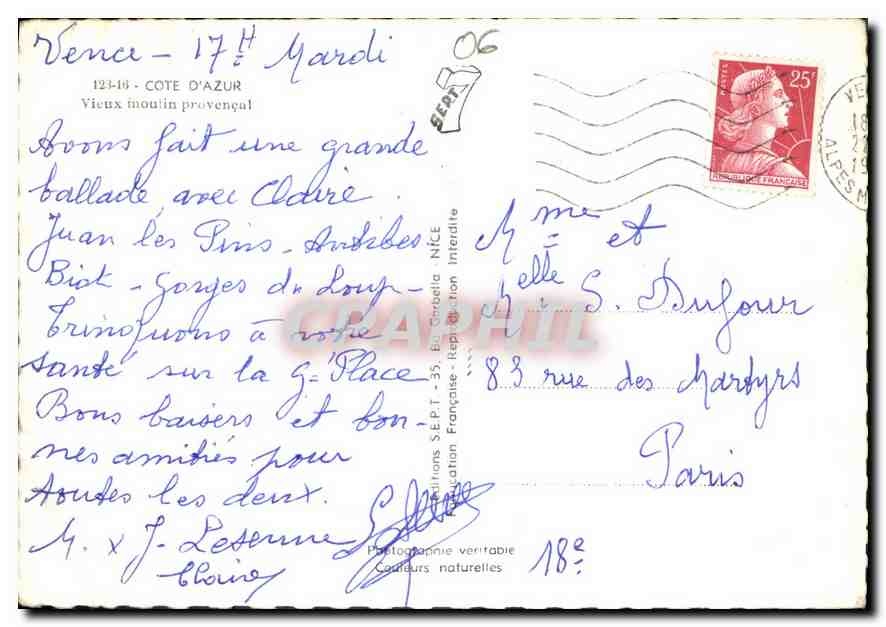 Vence - 17H Mardi
06
123-16 - COTE D'AZUR
Vieux moulin provençal
SEPT
Avons fait une grande
ballade avec Claire.
Juan les Pins - Antibes
Biot - Gorges du Loup -
Trinquons à votre
santé sur la Gde Place
Bons baisers et bon-
nes amitiés pour
toutes les deux.
M. x J. Leserme
Claire
Editions S.E.P.T. - 35, Bd Gorbella - NICE
Fabrication Française - Reproduction Interdite
Photographie véritable
Couleurs naturelles
POSTES 25F
REPUBLIQUE FRANÇAISE
VE
18
ALPES M
Mme et
Melle S. Dufour
83 rue des Martyrs
Paris
18e
CPAPHIL